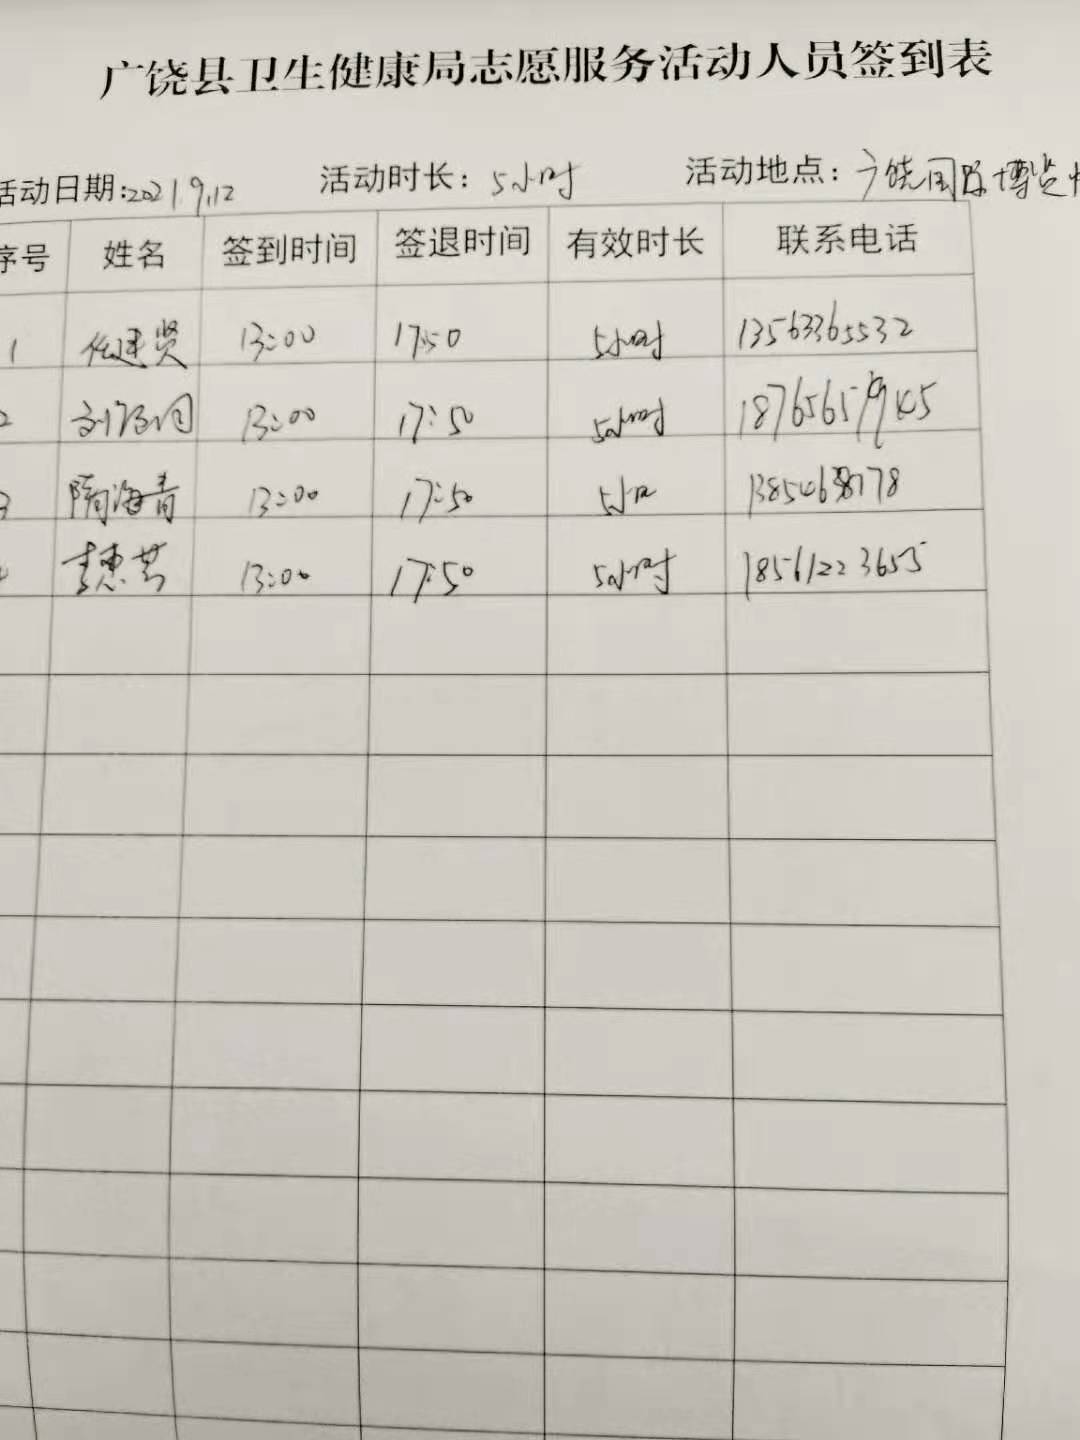 广饶县卫生健康局志愿服务活动人员签到表
活动日期:2021.9.12 活动时长：5小时 活动地点：广饶国际博览中
序号 姓名 签到时间 签退时间 有效时长 联系电话
1 任建贤 13:00 17:50 5小时 13563365532
2 刘 13:00 17:50 5小时
3 隋海青 13:00 17:50 5小时
4 李惠芸 13:00 17:50 5小时 18561223655